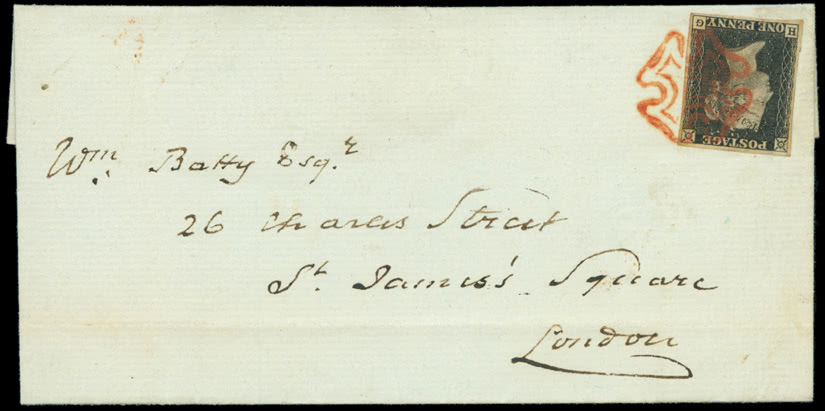 POSTAGE
ONE PENNY
G H
Wm Batty Esqr
26 Charles Street
St James's Square
London